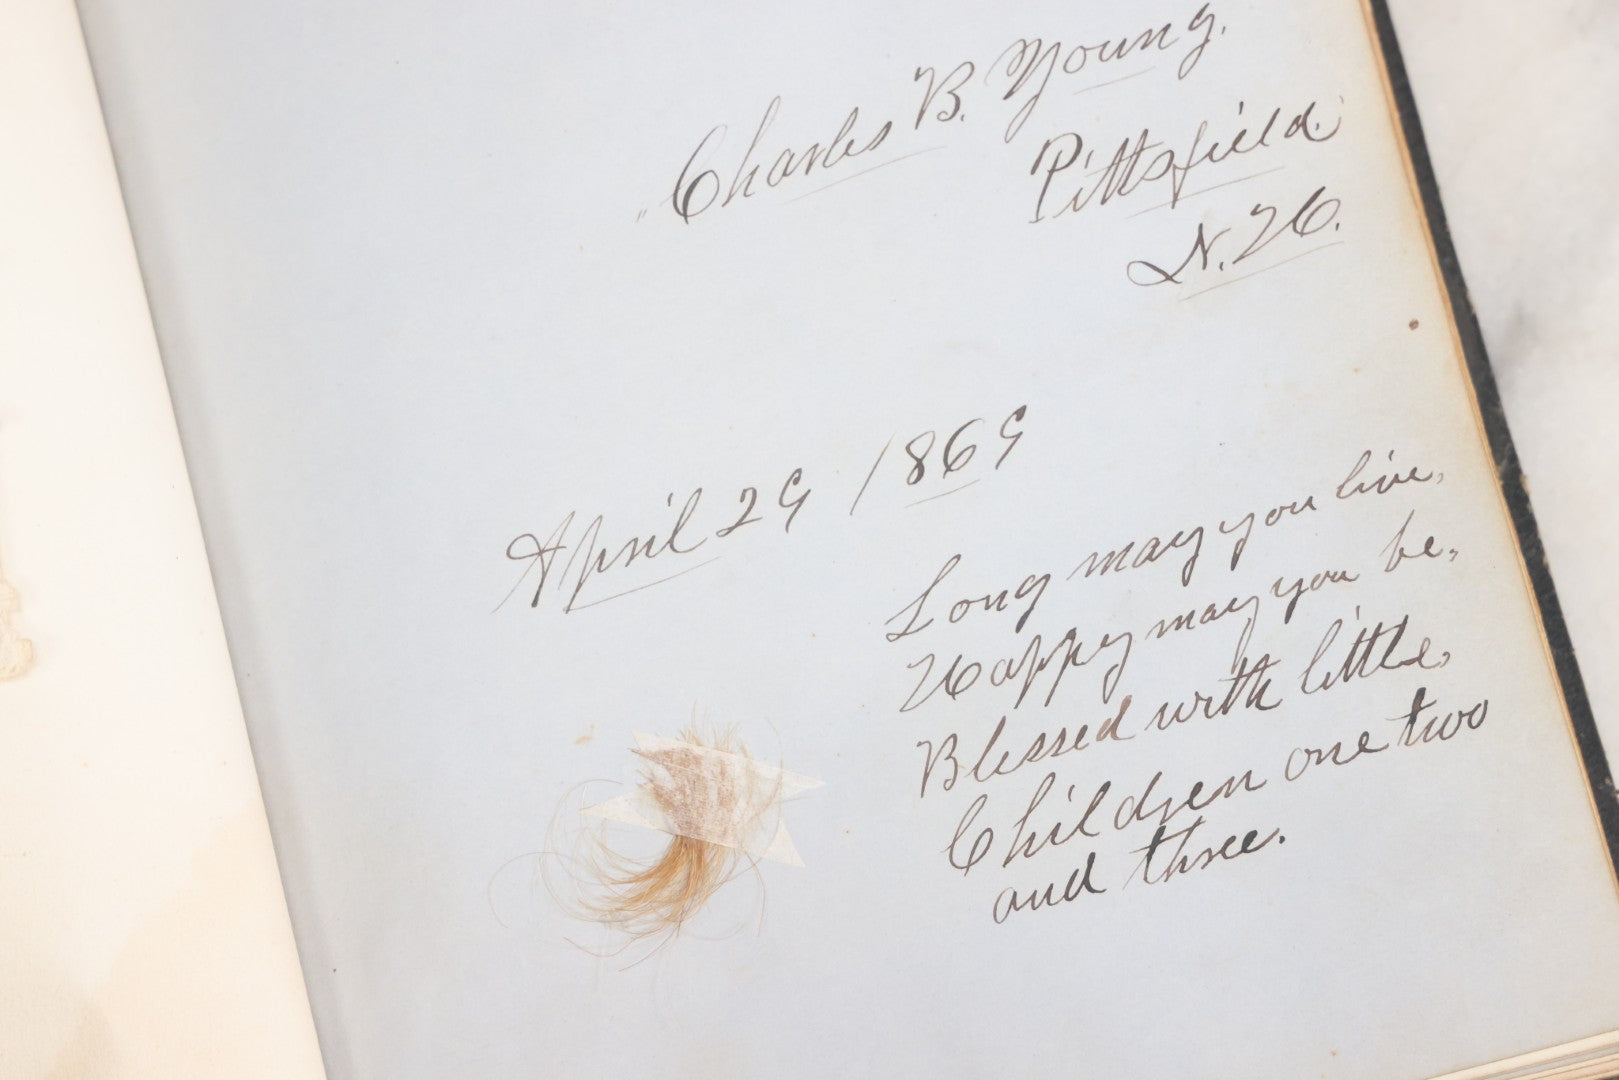 Charles B. Young.
Pittsfield.
N. H.
April 29 1869
Long may you live,
Happy may you be,
Blessed with little,
Children one two
and three.